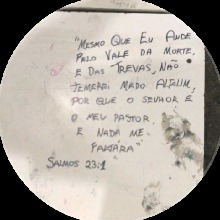 "MESMO QUE EU ANDE
PELO VALE DA MORTE,
E DAS TREVAS, NÃO
TEMEREI MADO ALGUM,
POR QUE O SENHOR E
O MEU PASTOR
E NADA ME.
FALTARA"
SALMOS 23:1